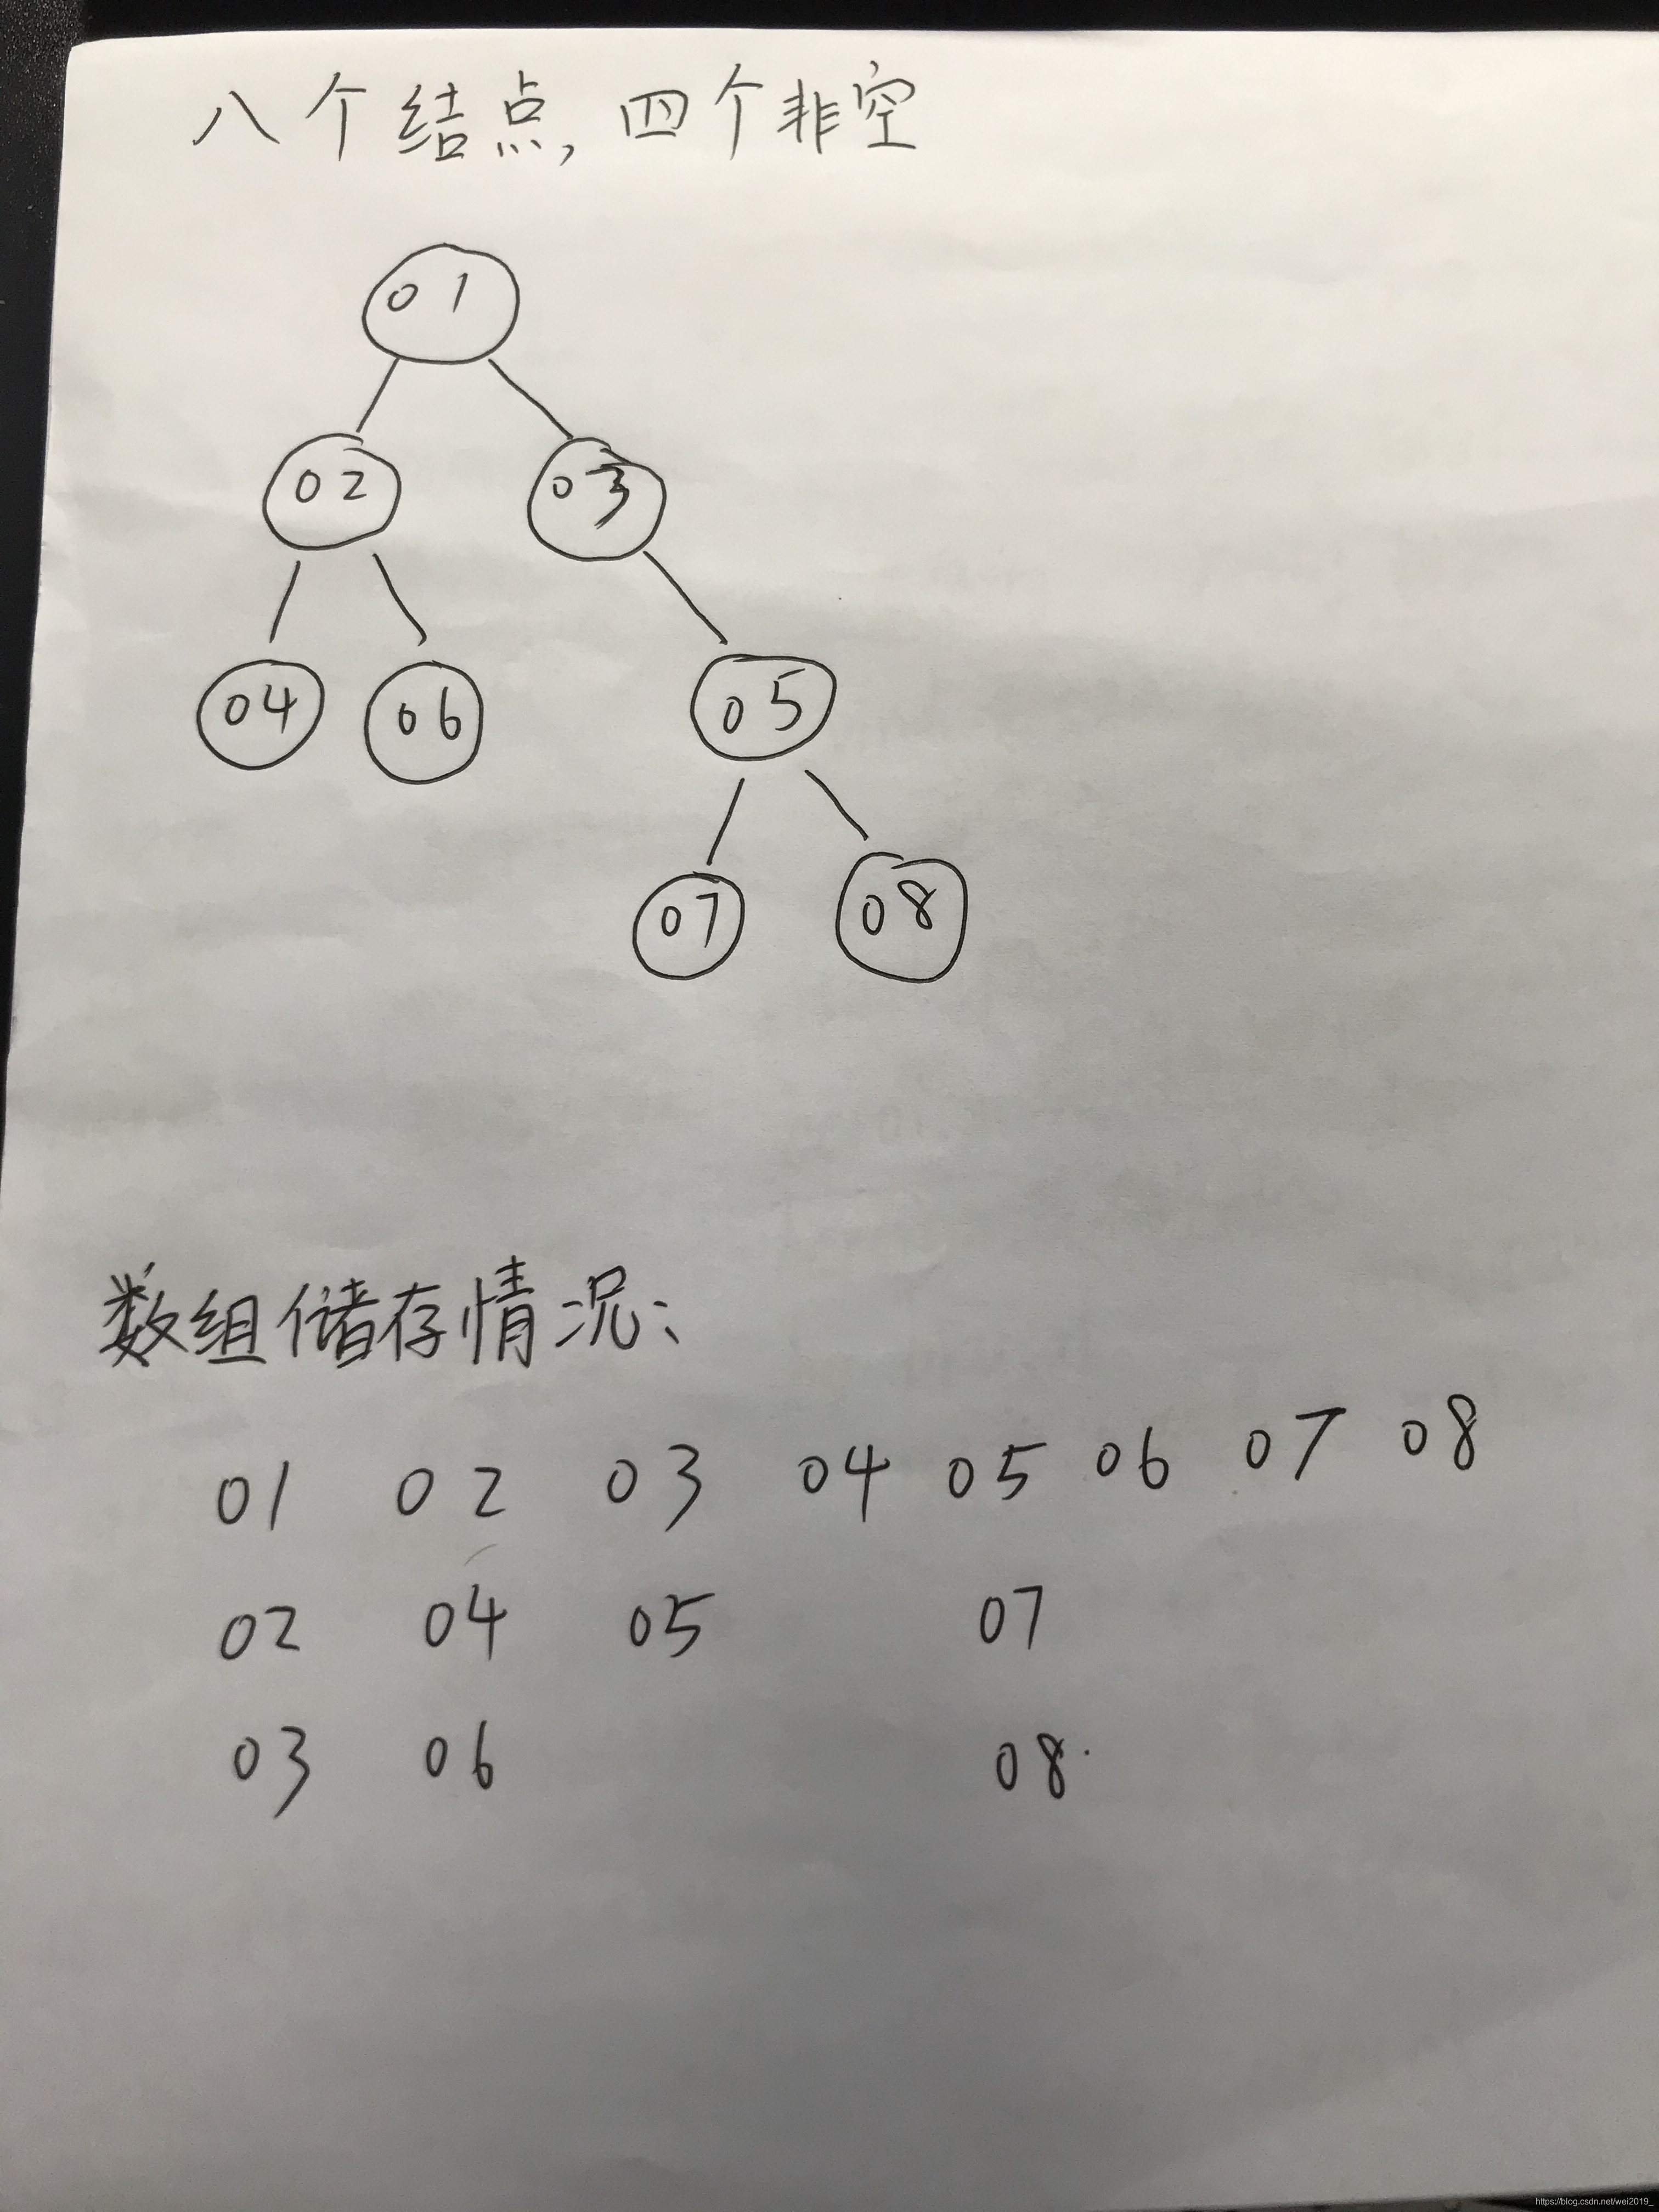 八个结点,四个非空
01
02 03
04 06 05
07 08
数组储存情况:
01 02 03 04 05 06 07 08
02 04 05 07
03 06 08
https://blog.csdn.net/wei2019_